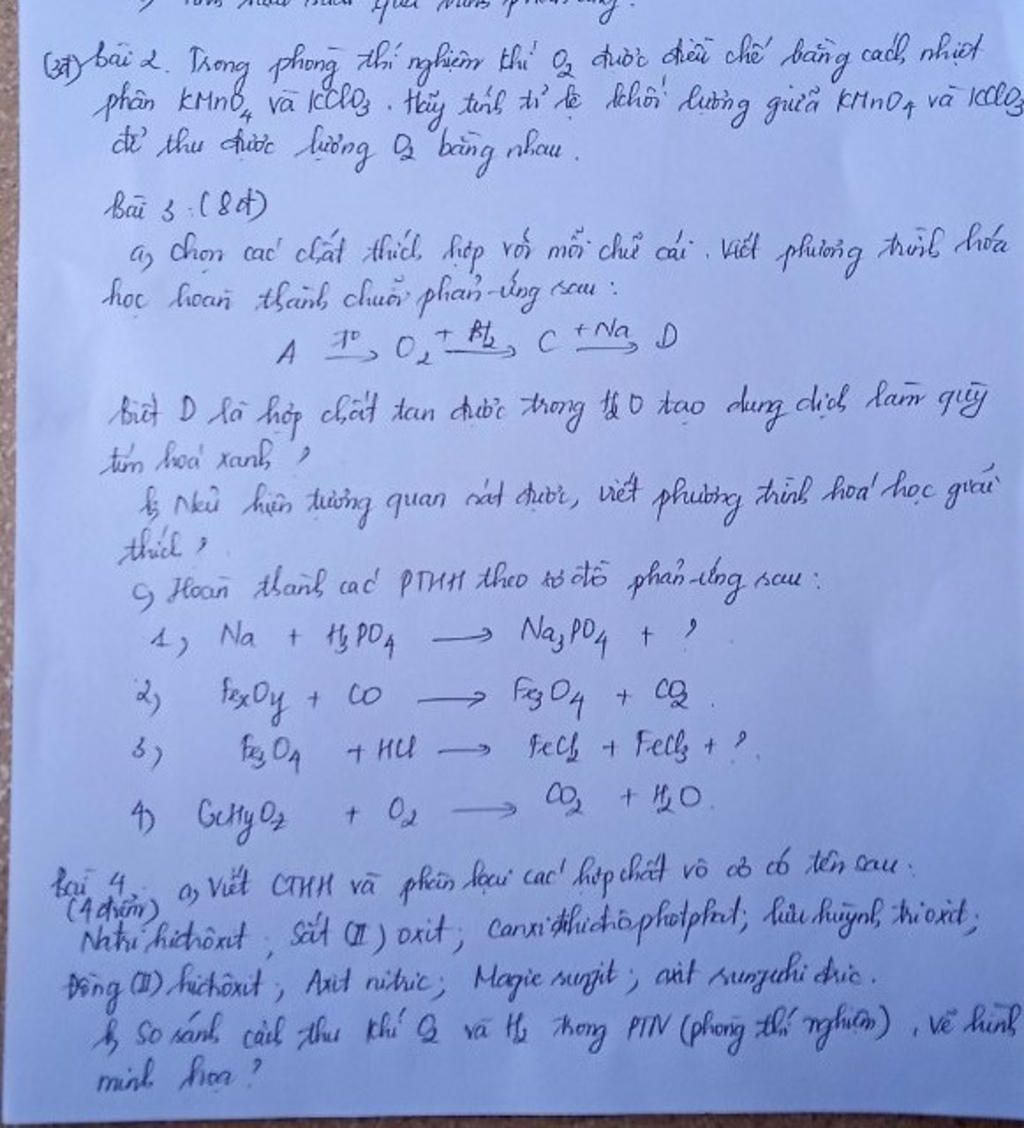 (3đ) bài 2. Trong phòng thí nghiệm khí O2 được điều chế bằng cách nhiệt
phân KMnO4 và KClO3. Hãy tính tỉ lệ khối lượng giữa KMnO4 và KClO3
để thu được lượng O2 bằng nhau.
Bài 3: (8đ)
a, chọn các chất thích hợp với mỗi chữ cái. Viết phương trình hóa
học hoàn thành chuỗi phản ứng sau:
A T° → O2 + H2 → C + Na → D
Biết D là hợp chất tan được trong H2O tạo dung dịch làm quỳ
tím hoá xanh ?
b, Nêu hiện tượng quan sát được, viết phương trình hoá học giải
thích ?
c, Hoàn thành các PTHH theo sơ đồ phản ứng sau:
1, Na + H3PO4 → Na3PO4 + ?
2, FexOy + CO → Fe3O4 + CO2.
3, Fe3O4 + HCl → FeCl2 + FeCl3 + ?.
4, CxHyO2 + O2 → CO2 + H2O.
Bài 4, a, Viết CTHH và phân loại các hợp chất vô cơ có tên sau:
(4 điểm)
Natri hiđrôxit; Sắt (II) oxit; Canxi đihiđrôphotphat; lưu huỳnh trioxit;
Đồng (II) hiđrôxit; Axit nitric; Magie sunfit; axit sunfuhiđric.
b, So sánh cách thu khí O2 và H2 trong PTN (phòng thí nghiệm), vẽ hình
minh hoạ?